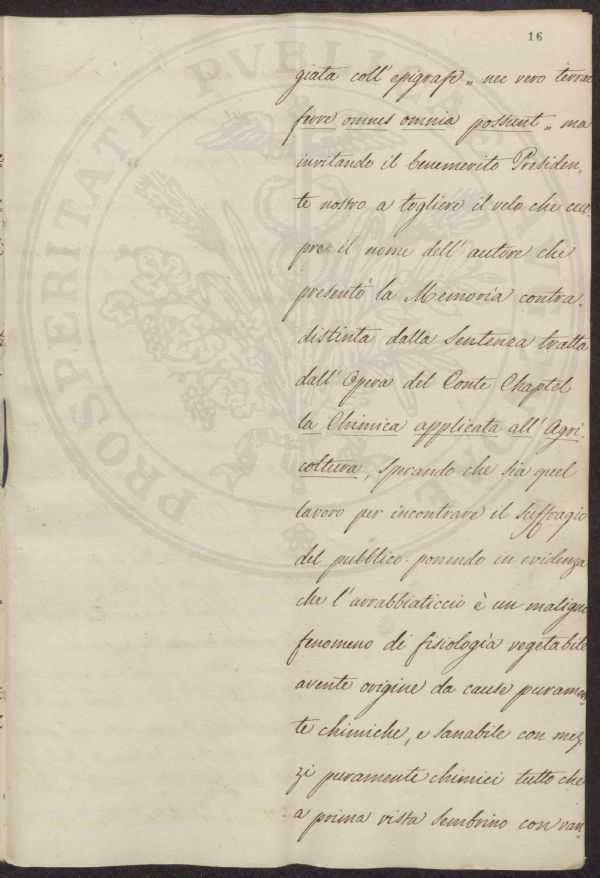 16
giata coll' epigrafe „ nec vero terrae
ferre omnes omnia possunt „ ma
invitando il benemerito Presiden=
te nostro a togliere il velo che cuo=
pre il nome dell' autore che
presentò la Memoria contra=
distinta dalla Sentenza tratta
dall' Opera del Conte Chaptel
la Chimica applicata all' Agri=
coltura, sperando che sia quel
lavoro per incontrare il suffragio
del pubblico ponendo in evidenza
che l'arrabbiaticcio è un maligno
fenomeno di fisiologia vegetabile
avente origine da cause puramen=
te chimiche, e sanabile con mez=
zi puramente chimici tutto che
a prima vista sembrino con van=
PROSPERITATI PVBLICAE